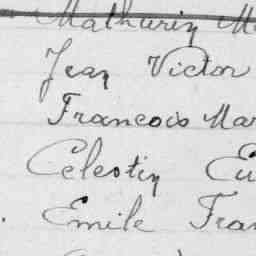 Mathurin M
Jean Victor
Francois Mar
Celestin Eu
Emile Fran